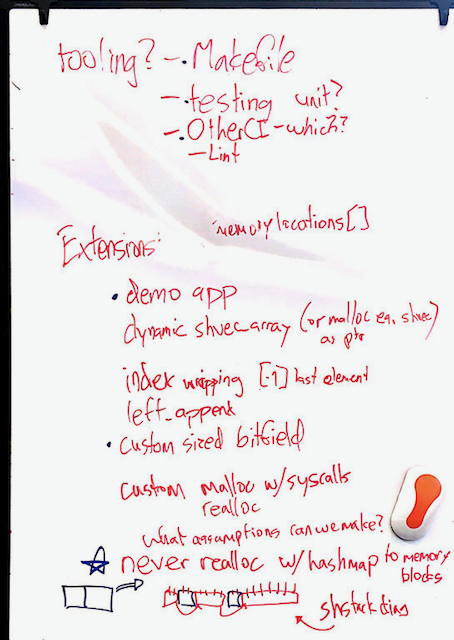 tooling? - Makefile
- testing unit?
- Other CI - which?
- Lint
memory locations []
Extensions:
• demo app
dynamic shvec_array (or malloc eq. shvec)
as ptr
index wrapping [-1] last element
left_append
• custom sized bitfield
custom malloc w/syscalls
realloc
what assumptions can we make?
never realloc w/hashmap to memory
blocks